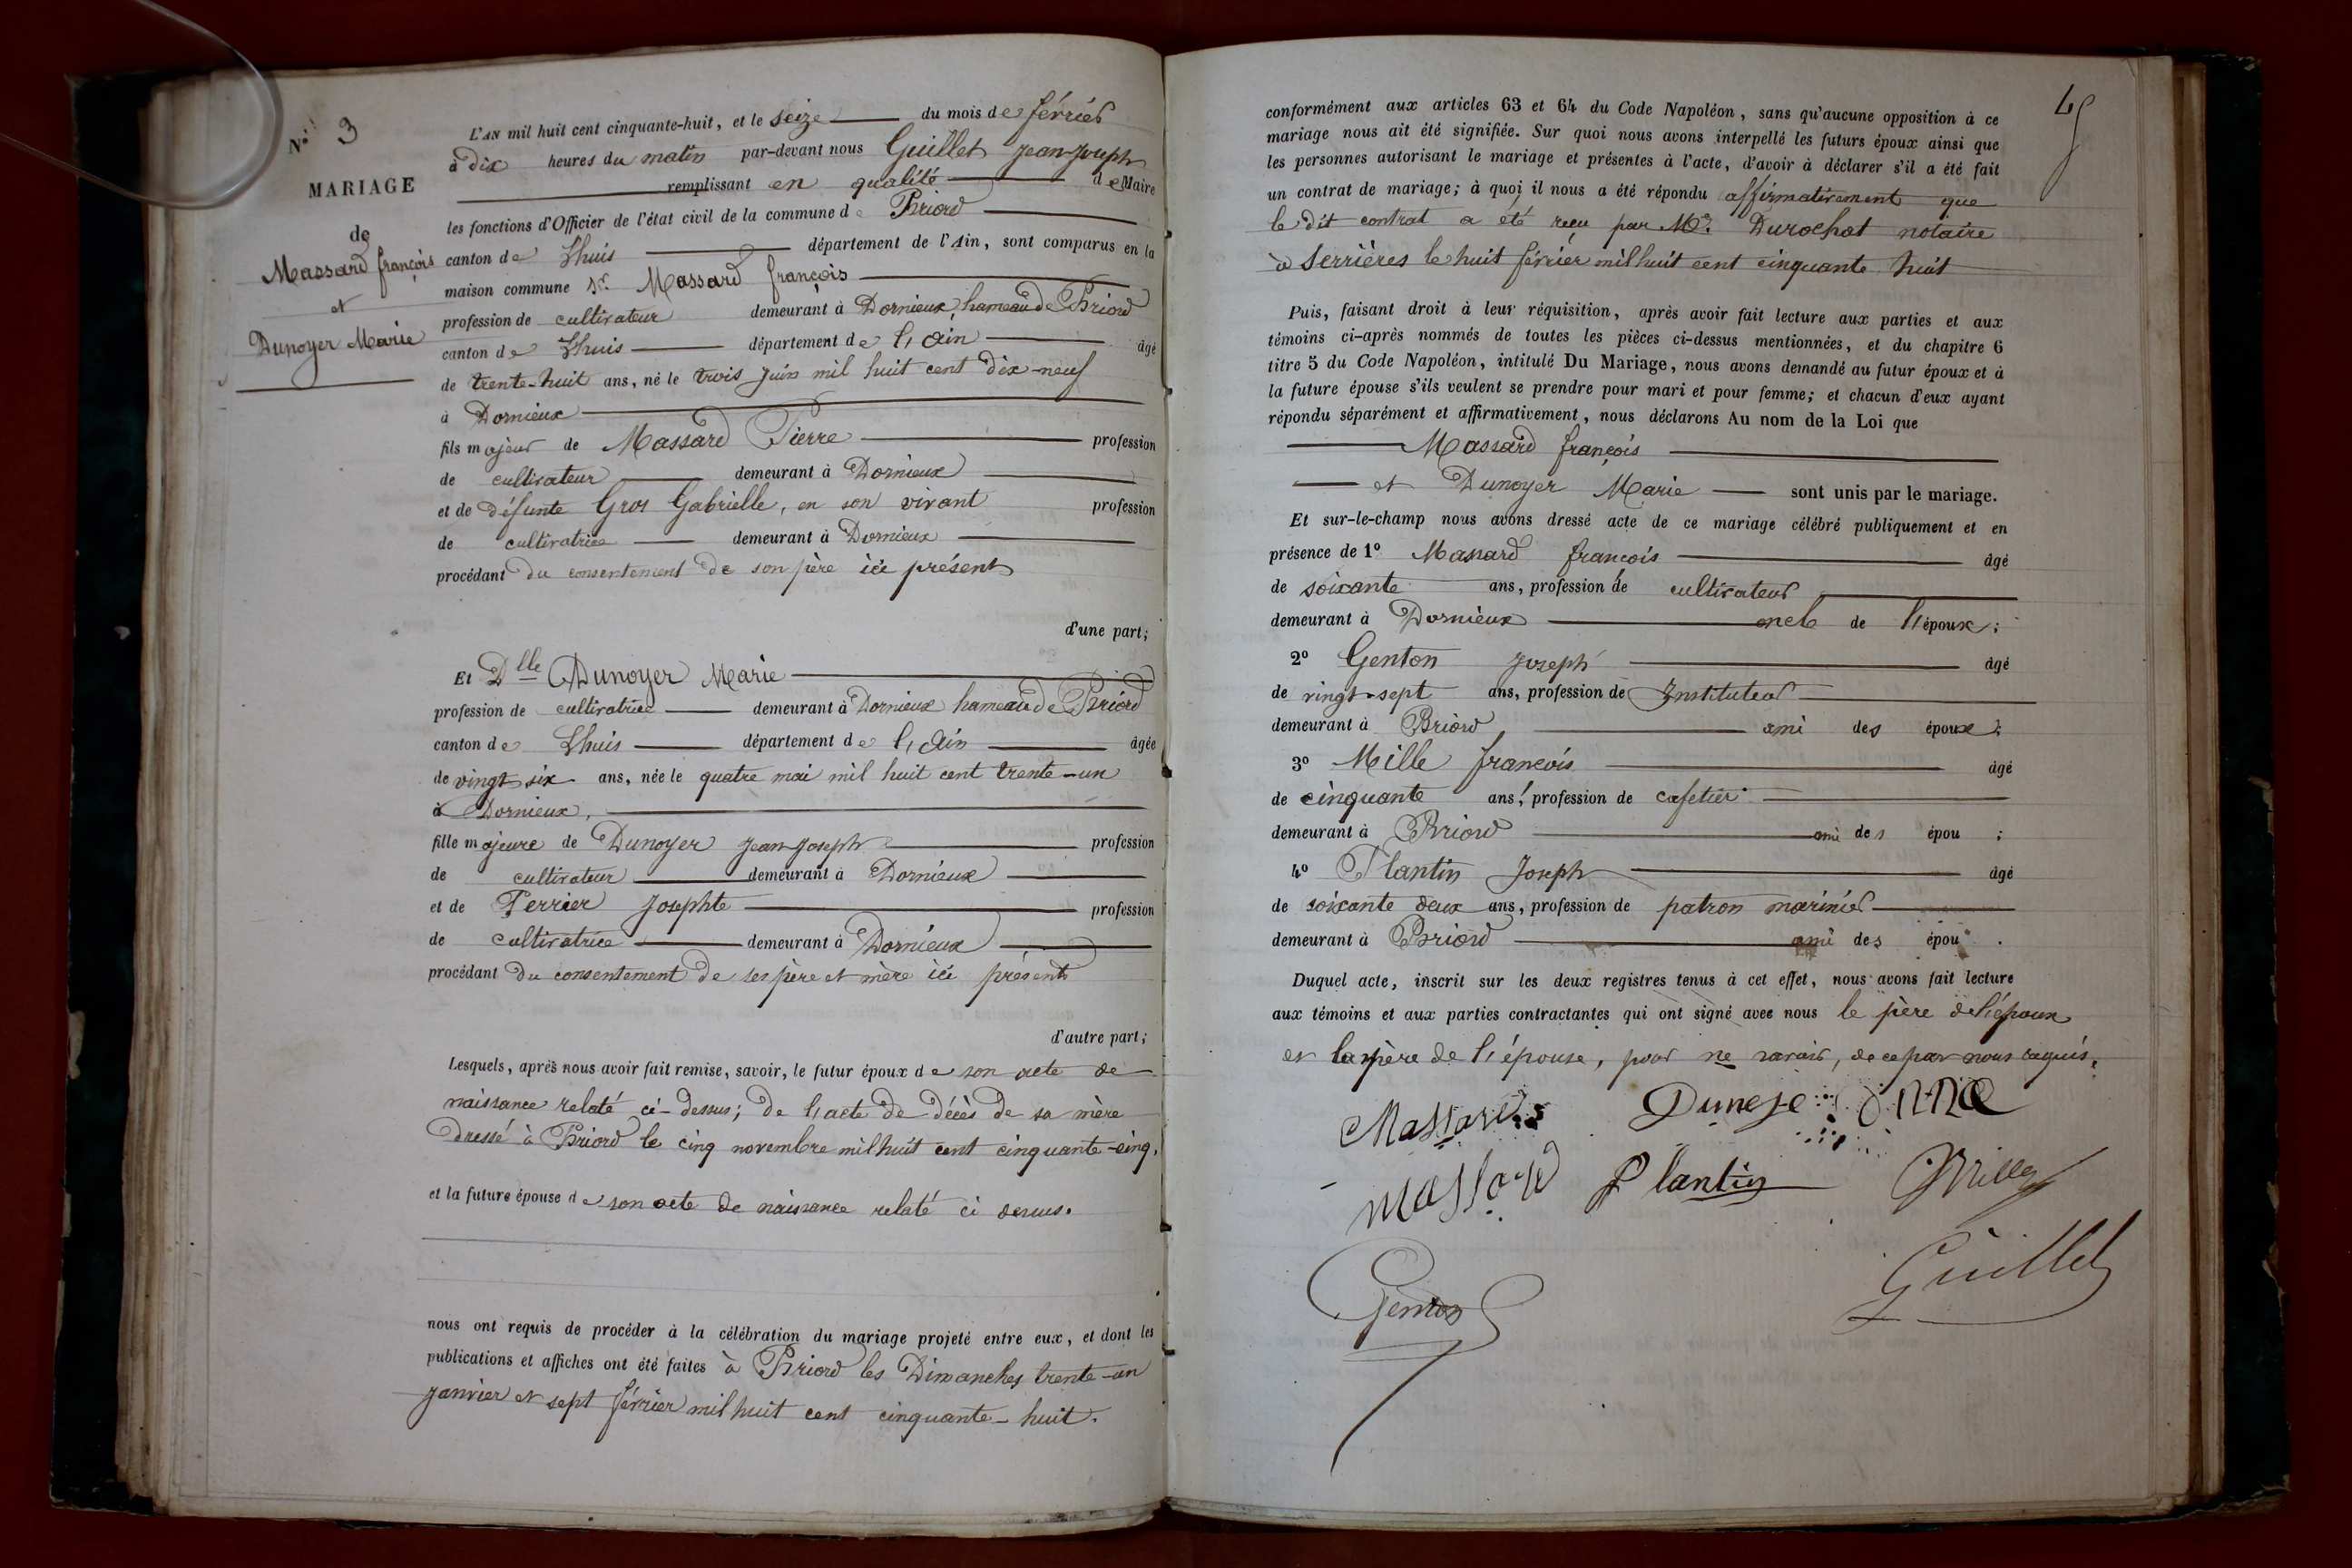 N° 3
MARIAGE
de
Massard françois
et
Dunoyer Marie
L'AN mil huit cent cinquante-huit, et le seize du mois de février
à dix heures du matin par-devant nous Guillet Jean-Joseph
remplissant en qualité de Maire
les fonctions d'Officier de l'état civil de la commune de Briord
canton de Lhuis département de l'Ain, sont comparus en la
maison commune Sr. Massard françois
profession de cultivateur demeurant à Dornieux, hameau de Briord
canton de Lhuis département de l'Ain âgé
de trente-huit ans, né le trois Juin mil huit cent dix-neuf
à Dornieux
fils majeur de Massard Pierre profession
de cultivateur demeurant à Dornieux
et de défunte Gros Gabrielle, en son vivant profession
de cultivatrice demeurant à Dornieux
procédant du consentement de son père ici présent
d'une part;
Et Dlle Dunoyer Marie
profession de cultivatrice demeurant à Dornieux hameau de Briord
canton de Lhuis département de l'Ain âgée
de vingt-six ans, née le quatre mai mil huit cent trente-un
à Dornieux,
fille majeure de Dunoyer Jean-Joseph profession
de cultivateur demeurant à Dornieux
et de Perrier Josephte profession
de cultivatrice demeurant à Dornieux
procédant du consentement de ses père et mère ici présents
d'autre part;
Lesquels, après nous avoir fait remise, savoir, le futur époux de son acte de
naissance relaté ci-dessus; de l'acte de décès de sa mère
dressé à Briord le cinq novembre mil huit cent cinquante-cinq,
et la future épouse de son acte de naissance relaté ci dessus.
nous ont requis de procéder à la célébration du mariage projeté entre eux, et dont les
publications et affiches ont été faites à Briord les Dimanches trente-un
janvier et sept février mil huit cent cinquante-huit.
conformément aux articles 63 et 64 du Code Napoléon, sans qu'aucune opposition à ce
mariage nous ait été signifiée. Sur quoi nous avons interpellé les futurs époux ainsi que
les personnes autorisant le mariage et présentes à l'acte, d'avoir à déclarer s'il a été fait
un contrat de mariage; à quoi il nous a été répondu affirmativement que
le dit contrat a été reçu par Me. Durochat notaire
à Serrières le huit février mil huit cent cinquante huit
Puis, faisant droit à leur réquisition, après avoir fait lecture aux parties et aux
témoins ci-après nommés de toutes les pièces ci-dessus mentionnées, et du chapitre 6
titre 5 du Code Napoléon, intitulé Du Mariage, nous avons demandé au futur époux et à
la future épouse s'ils veulent se prendre pour mari et pour femme; et chacun d'eux ayant
répondu séparément et affirmativement, nous déclarons Au nom de la Loi que
Massard françois
et Dunoyer Marie sont unis par le mariage.
Et sur-le-champ nous avons dressé acte de ce mariage célébré publiquement et en
présence de 1° Massard francois âgé
de soixante ans, profession de cultivateur
demeurant à Dornieux oncle de l'époux;
2° Genton Joseph âgé
de vingt-sept ans, profession de Instituteur
demeurant à Briord ami des époux;
3° Mille francois âgé
de cinquante ans, profession de cafetier
demeurant à Briord ami des épou ;
4° Plantin Joseph âgé
de soixante deux ans, profession de patron marinier
demeurant à Briord ami des épou .
Duquel acte, inscrit sur les deux registres tenus à cet effet, nous avons fait lecture
aux témoins et aux parties contractantes qui ont signé avec nous le père de l'époux
et la mère de l'épouse, pour ne savoir, de ce par nous requis.
Massard
Massard Plantin Mille
Genton
Guillet